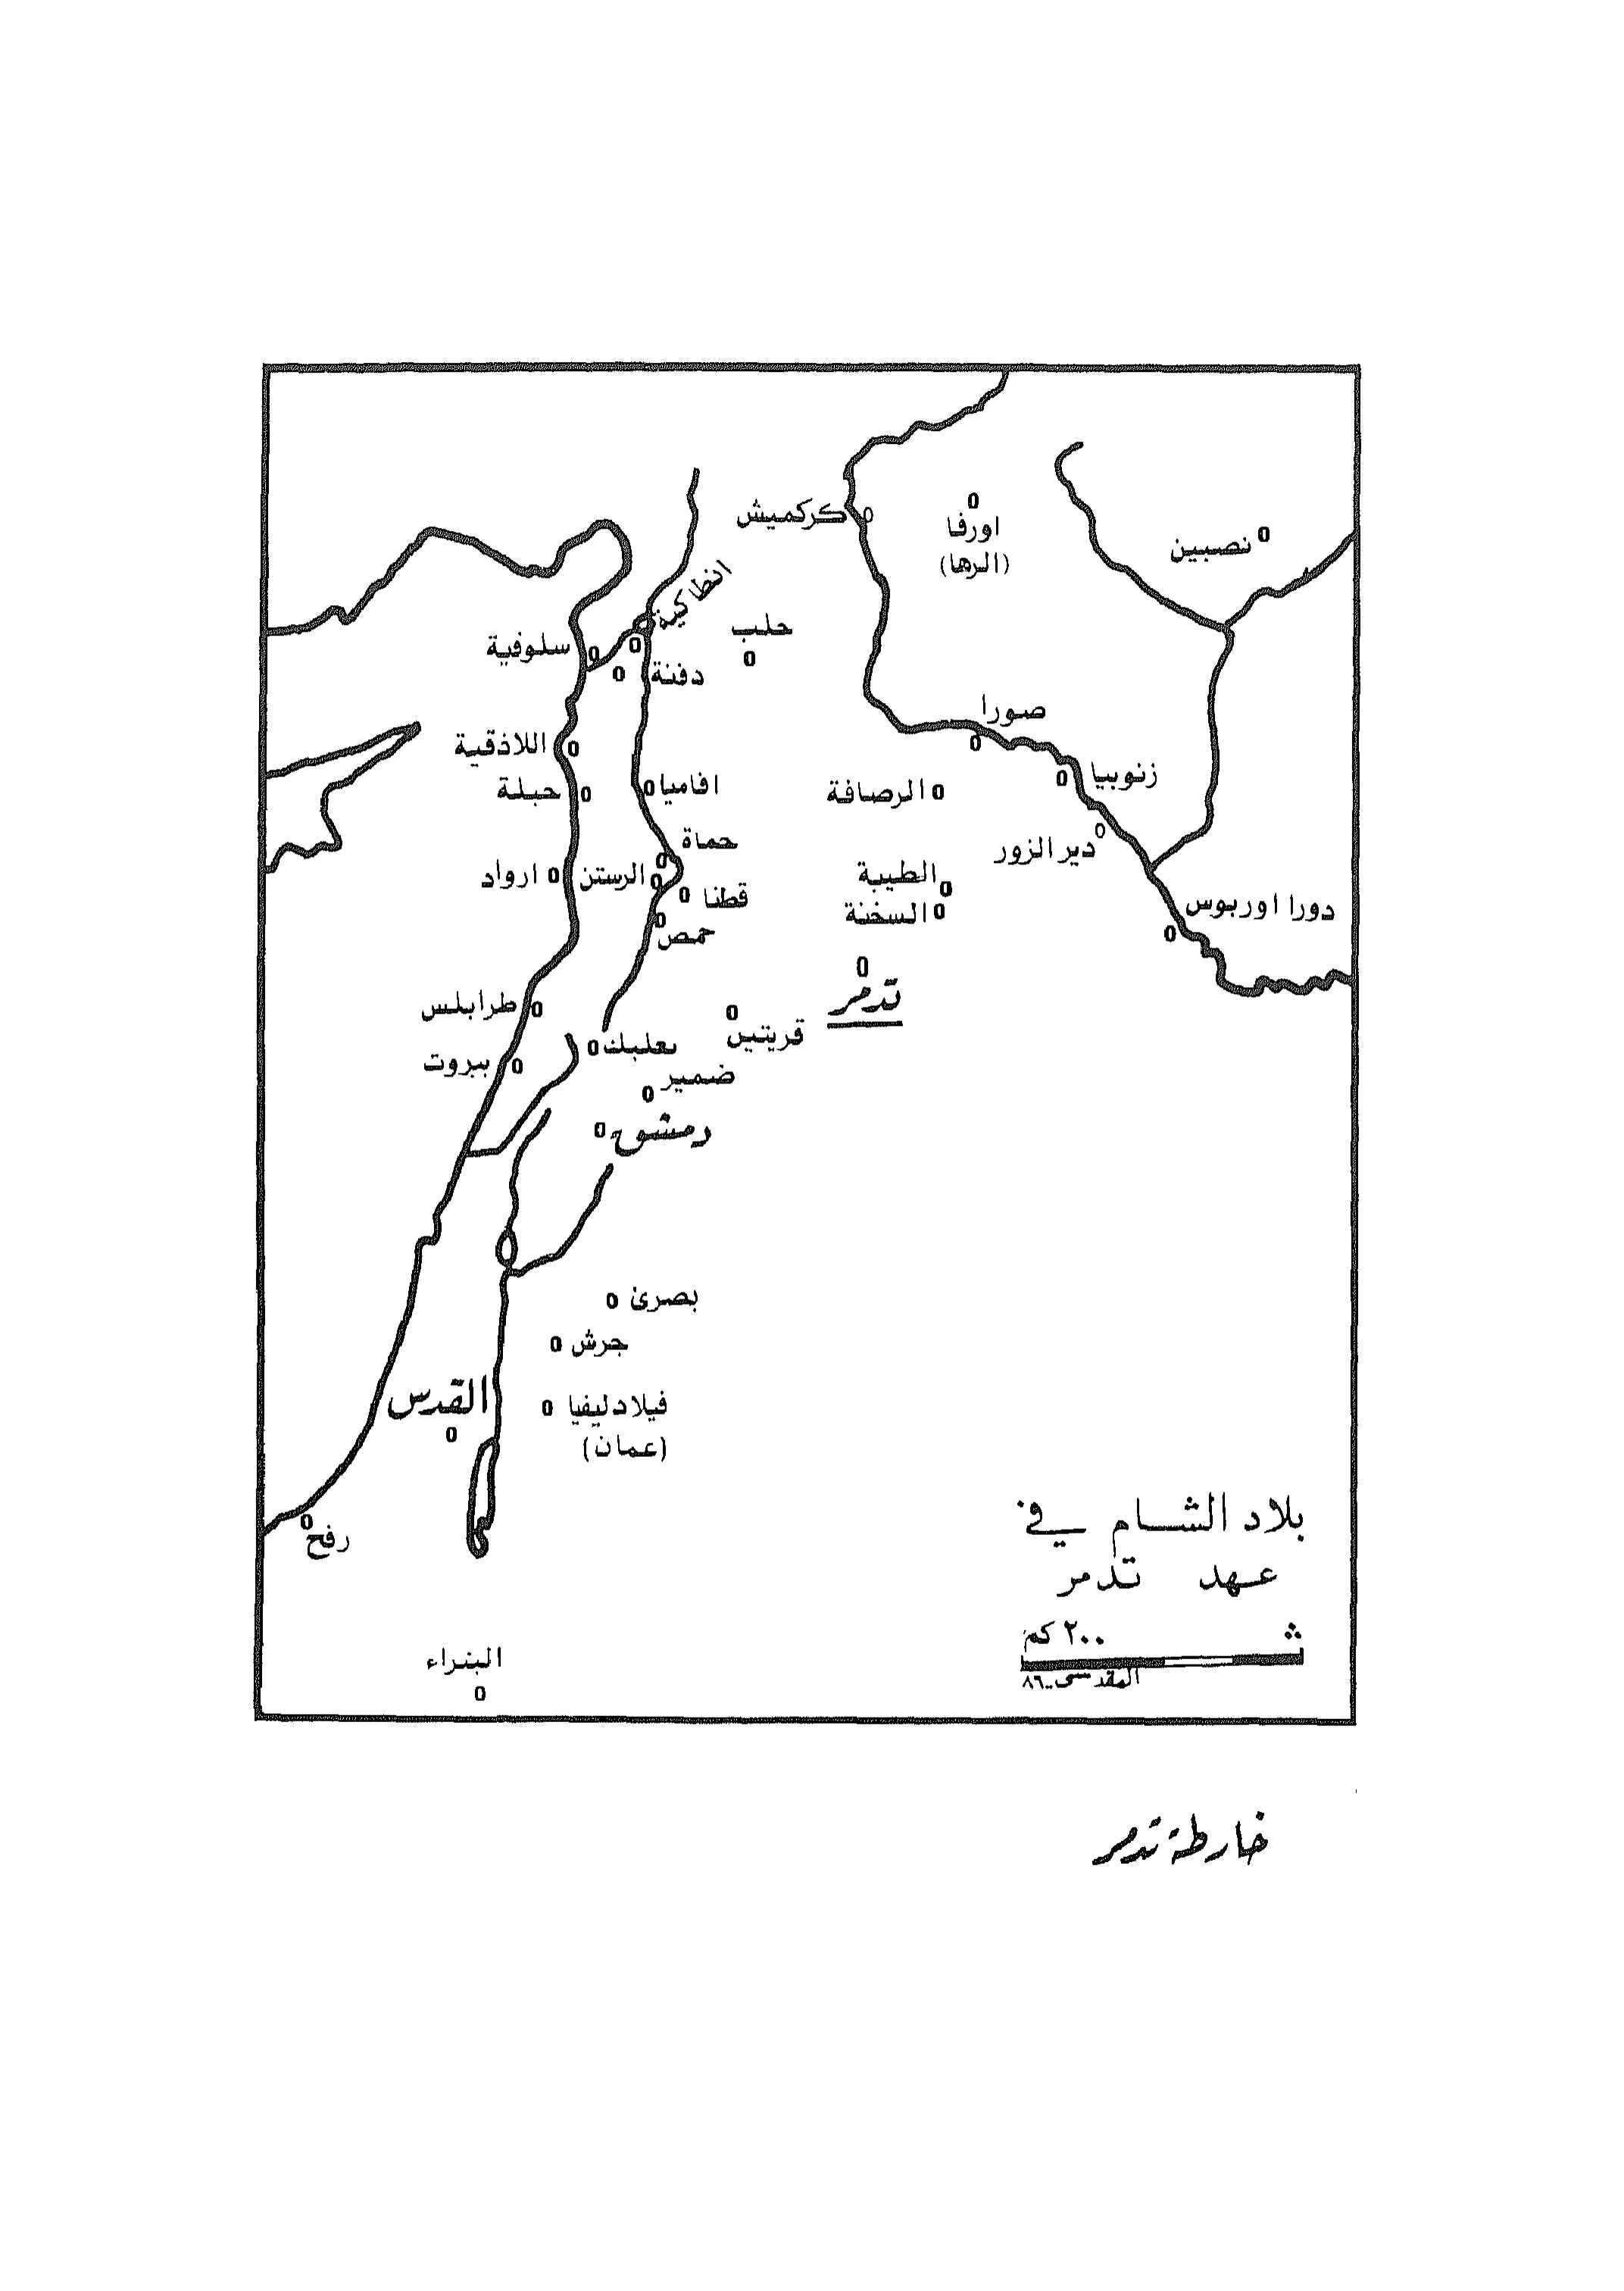 كركميش
اورفا
(الرها)
نصبين
انطاكية
حلب
سلوفية
دفنة
صورا
اللاذقية
زنوبيا
حبلة
افاميا
الرصافة
حماة
دير الزور
ارواد
الرستن
الطيبة
قطنا
السخنة
دورا اوربوس
حمص
تدمر
طرابلس
قريتين
بعلبك
بيروت
ضمير
دمشق
بصرى
جرش
القدس
فيلادليفيا
(عمان)
رفح
البتراء
بلاد الشام في
عهد تدمر
٢٠٠ كم
المقدسي-٨٦
خارطة تدمر